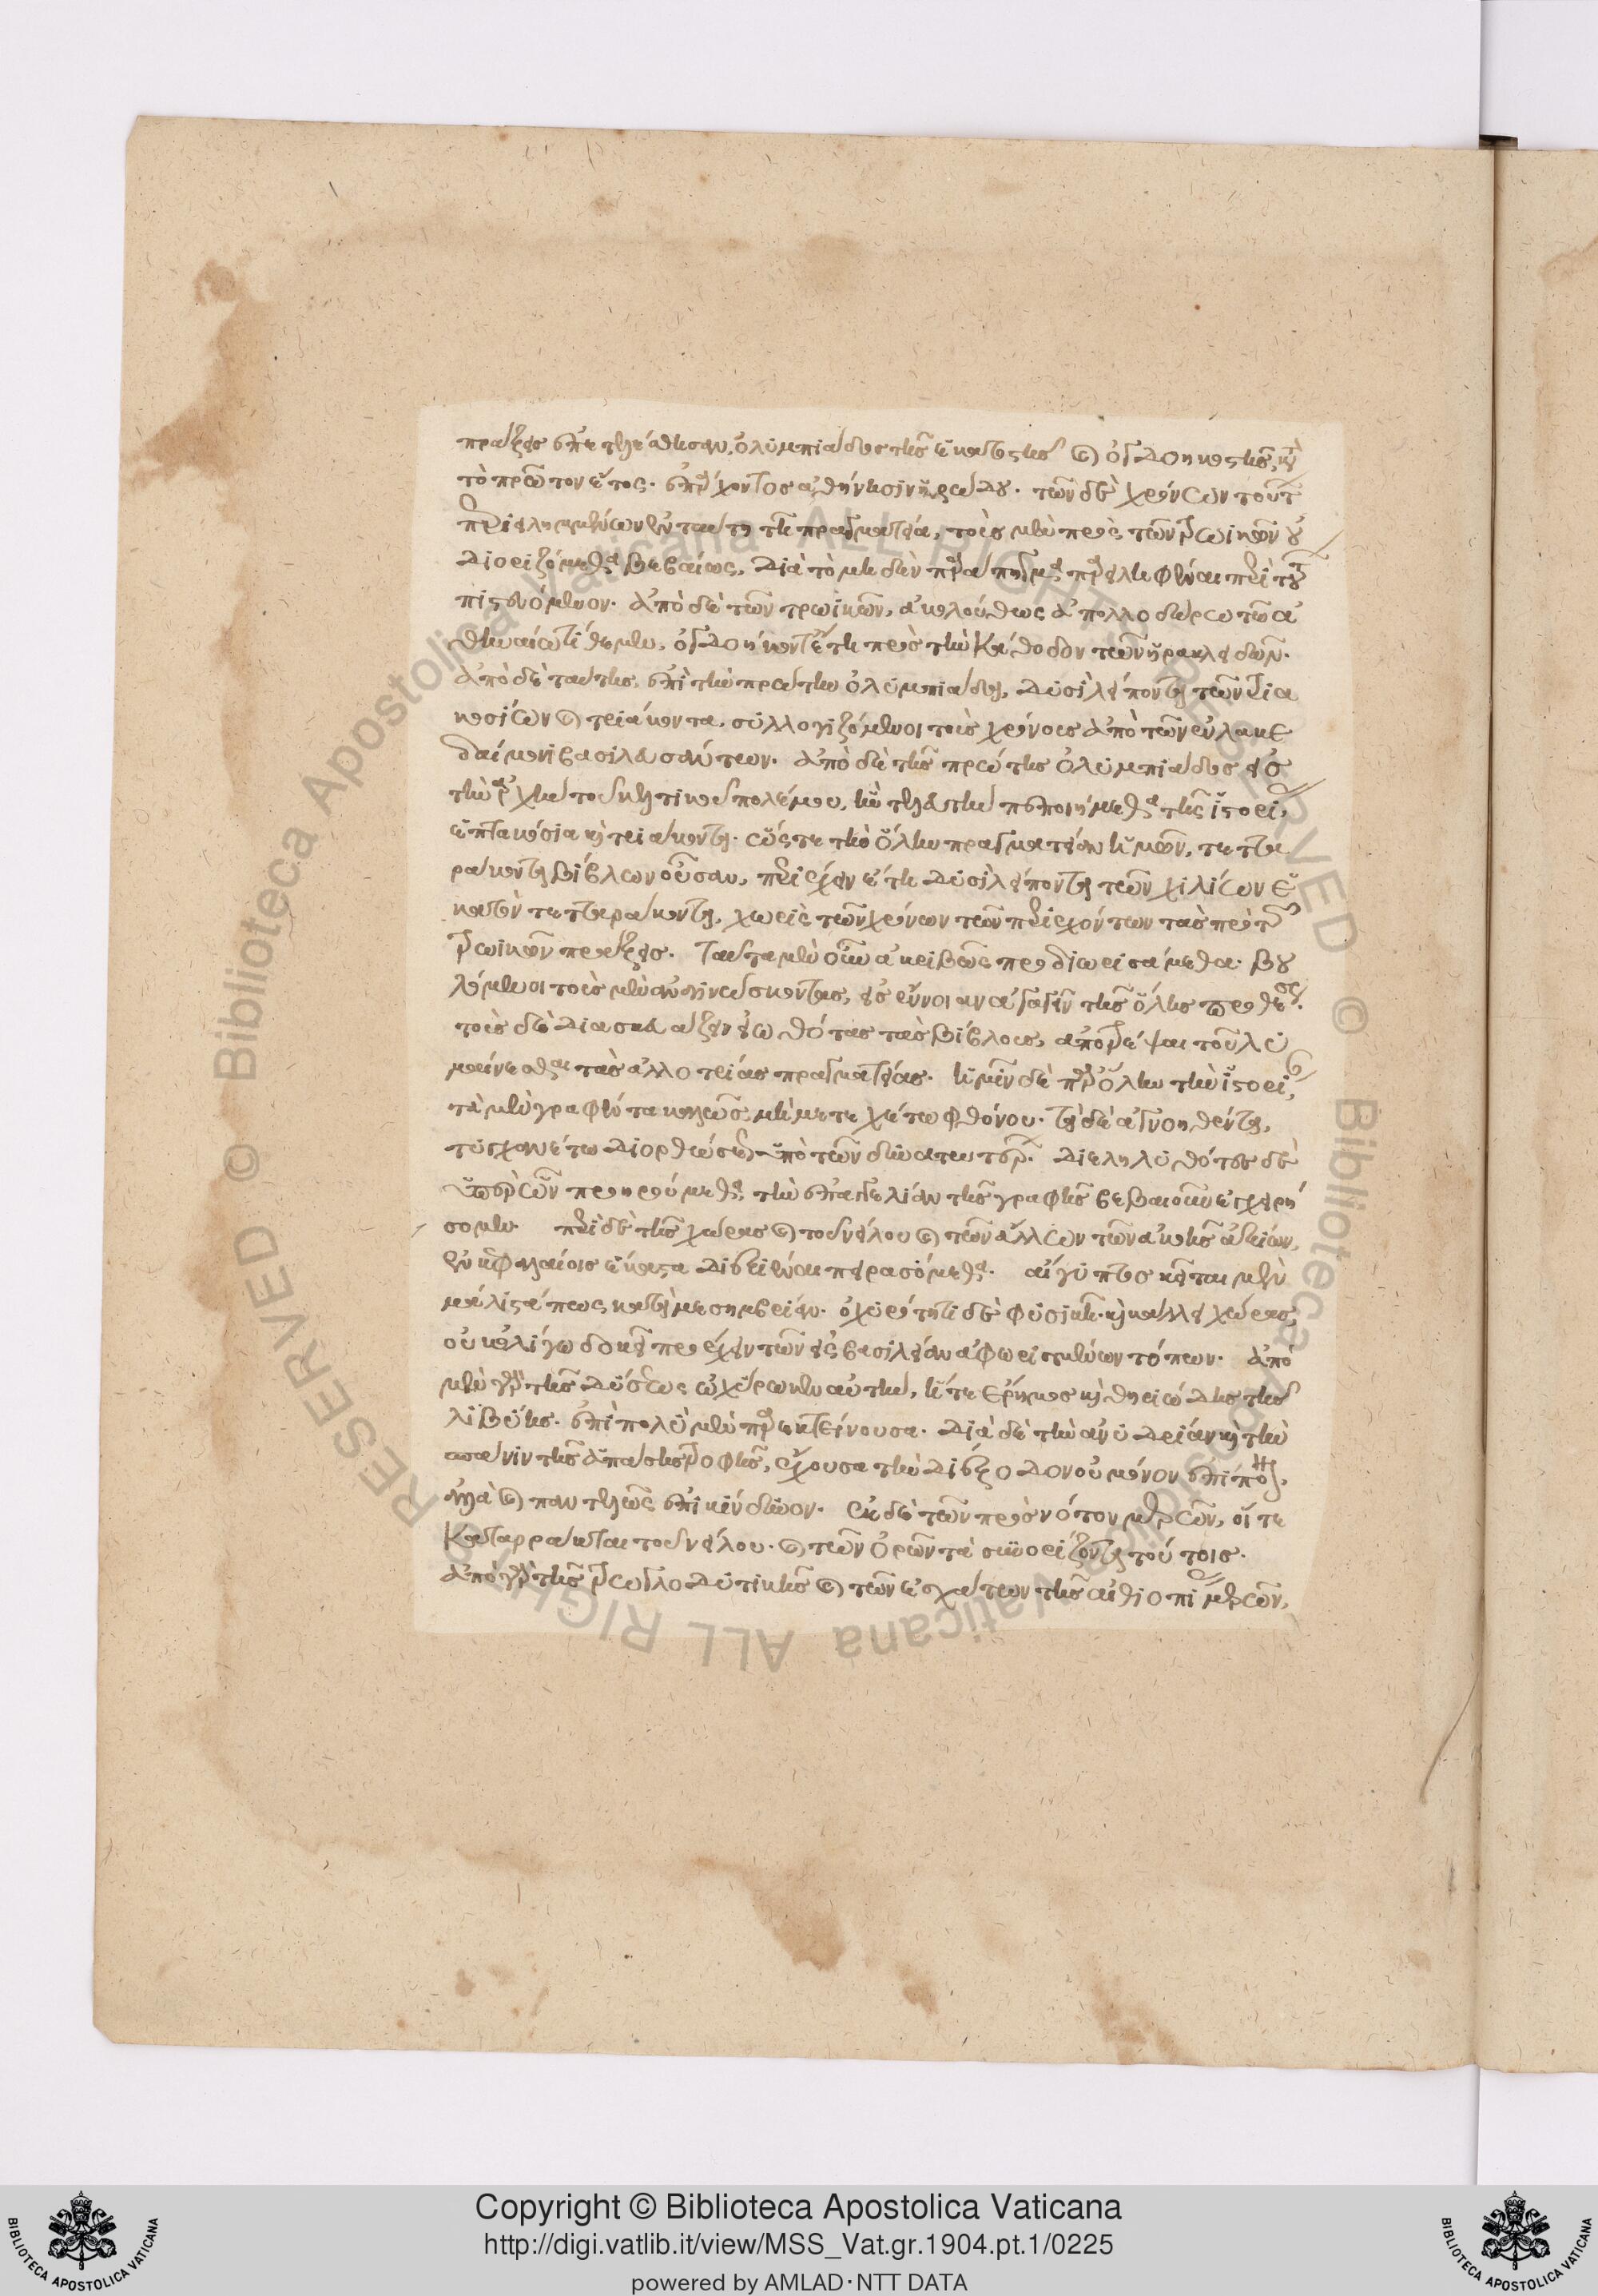 πράξεις ἐτελεύτησαν, ὀλυμπιάδος τῆς ἑκατοστῆς καὶ ὀγδοηκοστῆς, κατὰ
τὸ πρῶτον ἔτος. ἐπάρχοντος ἀθήνησιν ἡρώδου. τῶν δὲ χρόνων τούτων
περιειλημμένων ἐν ταύτη τῆ πραγματεία, τοὺς μὲν πρὸς τῶν τρωϊκῶν οὐ
διοριζόμεθα βεβαίως, διὰ τὸ μηδὲν παράπηγμα παρειληφέναι περὶ τούτων
πιστευόμενον. ἀπὸ δὲ τῶν τρωϊκῶν, ἀκολούθως ἀπολλοδώρω τῶ ἀ
θηναίω τίθεμεν, ὀγδοήκοντ' ἔτη πρὸς τὴν κάθοδον τῶν ἡρακλειδῶν.
ἀπὸ δὲ ταύτης, ἐπὶ τὴν πρώτην ὀλυμπιάδα, δυσὶ λείποντα τῶν τρια
κοσίων καὶ τριάκοντα, συλλογιζόμενοι τοὺς χρόνους ἀπὸ τῶν ἐν λακε
δαίμονι βασιλευσάντων. ἀπὸ δὲ τῆς πρώτης ὀλυμπιάδος εἰς
τὴν ἀρχὴν τοῦ κελτικοῦ πολέμου, ἣν τελευτὴν πεποιήμεθα τῆς ἱστορίας,
ἑπτακόσια καὶ τριάκοντα. ὥστε τὴν ὅλην πραγματείαν ἡμῶν, τεττα
ράκοντα βίβλων οὖσαν, περιέχειν ἔτη δυσὶ λείποντα τῶν χιλίων ἑ
κατὸν τετταράκοντα, χωρὶς τῶν χρόνων τῶν περιεχόντων τὰς πρὸ τῶν
τρωϊκῶν πράξεις. ταῦτα μὲν οὖν ἀκριβῶς προδιωρισάμεθα. βου
λόμενοι τοὺς μὲν ἀναγινώσκοντας, εἰς ἔννοιαν ἀγαγεῖν τῆς ὅλης προθέσεως.
τοὺς δὲ διασκευάζειν εἰωθότας τὰς βίβλους, ἀποτρέψαι τοῦ λυ
μαίνεσθαι τὰς ἀλλοτρίας πραγματείας. ἡμῖν δὲ παρ' ὅλην τὴν ἱστορίαν,
τὰ μὲν γραφέντα καλῶς μὴ μετεχέτω φθόνου. τὰ δὲ ἀγνοηθέντα,
τυγχανέτω διορθώσεως ὑπὸ τῶν δυνατωτέρων. διεληλυθότες δὲ
ὑπὲρ ὧν προηρούμεθα, τὴν ἐπαγγελίαν τῆς γραφῆς βεβαιοῦν ἐγχειρή
σομεν. περὶ δὲ τῆς χώρας καὶ τοῦ νείλου καὶ τῶν ἄλλων τῶν ἀκοῆς ἀξίων,
ἐν κεφαλαίοις ἕκαστα διεξιέναι πειρασόμεθα. αἴγυπτος κεῖται μὲν
μάλιστά πως κατὰ μεσημβρίαν. ὀχυρότητι δὲ φυσικῆ. καὶ κάλλει χώρας,
οὐκ ὀλίγω δοκεῖ προέχειν τῶν εἰς βασιλείαν ἀφωρισμένων τόπων. ἀπὸ
μὲν γὰρ τῆς δύσεως ὠχύρωκεν αὐτὴν, ἥ τε ἔρημος καὶ θηριώδης τῆς
λιβύης. ἐπὶ πολὺ μὲν παρεκτείνουσα. διὰ δὲ τὴν ἀνυδρίαν καὶ τὴν
σπάνιν τῆς ἁπάσης τροφῆς, ἔχουσα τὴν διέξοδον οὐ μόνον ἐπίπονον,
ἀλλὰ καὶ παντελῶς ἐπικίνδυνον. ἐκ δὲ τῶν πρὸς νότον μερῶν, οἵ τε
καταρράκται τοῦ νείλου. καὶ τῶν ὀρῶν τὰ συνορίζοντα τούτοις.
ἀπὸ γὰρ τῆς τρωγλοδυτικῆς καὶ τῶν ἐσχάτων τῆς αἰθιοπίας μερῶν,
Copyright © Biblioteca Apostolica Vaticana
http://digi.vatlib.it/view/MSS_Vat.gr.1904.pt.1/0225
powered by AMLAD·NTT DATA